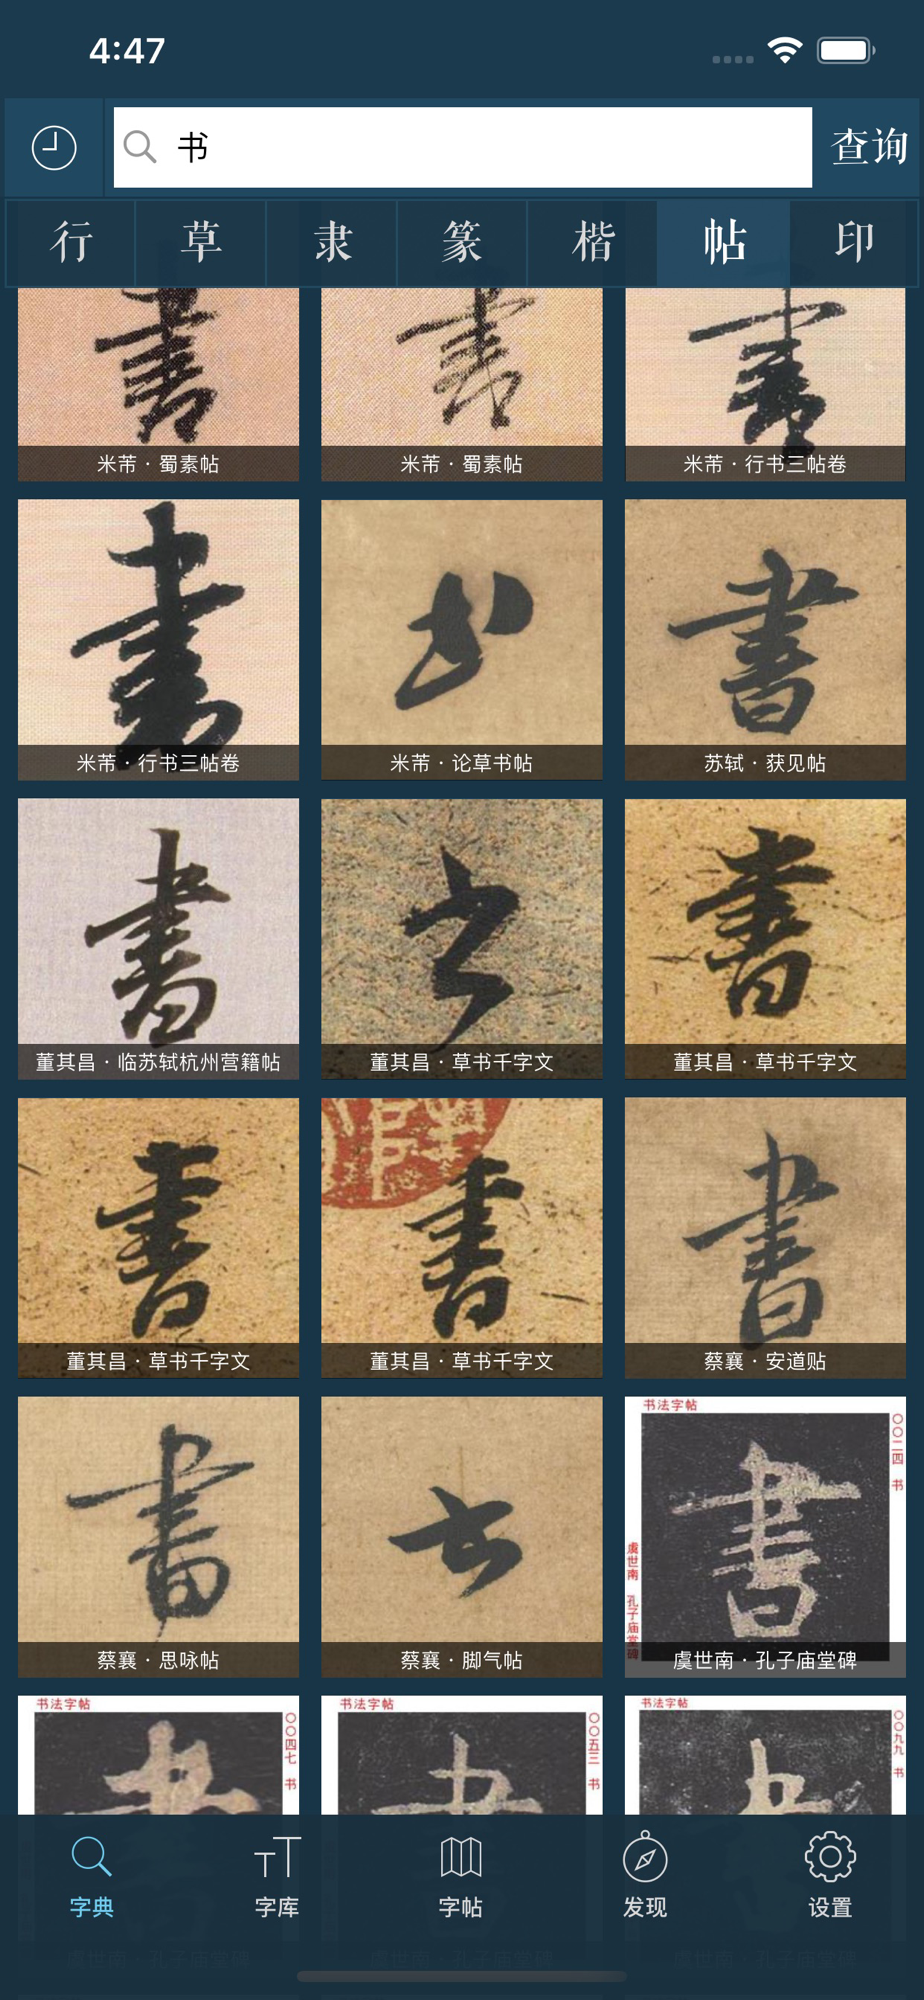 4:47
书
查询
行 草 隶 篆 楷 帖 印
書 書 書
米芾 · 蜀素帖 米芾 · 蜀素帖 米芾 · 行书三帖卷
書 书 書
米芾 · 行书三帖卷 米芾 · 论草书帖 苏轼 · 获见帖
書 书 書
董其昌 · 临苏轼杭州营籍帖 董其昌 · 草书千字文 董其昌 · 草书千字文
書 書 書
董其昌 · 草书千字文 董其昌 · 草书千字文 蔡襄 · 安道贴
書 书 書
书法字帖
〇〇二四 书
虞世南 孔子庙堂碑
蔡襄 · 思咏帖 蔡襄 · 脚气帖 虞世南 · 孔子庙堂碑
书法字帖 书法字帖 书法字帖
〇〇四七 书 〇〇五三 书 〇〇九九 书
字典 字库 字帖 发现 设置
虞世南 · 孔子庙堂碑 虞世南 · 孔子庙堂碑 虞世南 · 孔子庙堂碑